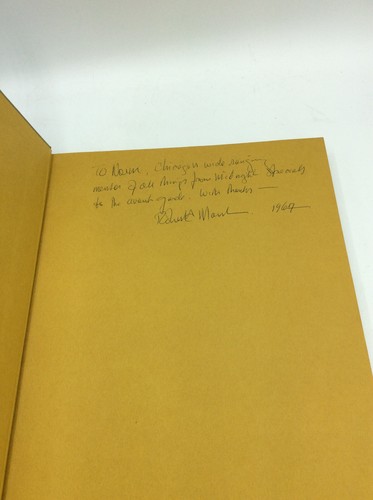 To Norm, Chicago's wide ranging
of all things from Midnight Specials
to the avant-garde. With thanks —
Robert Marsh 1967